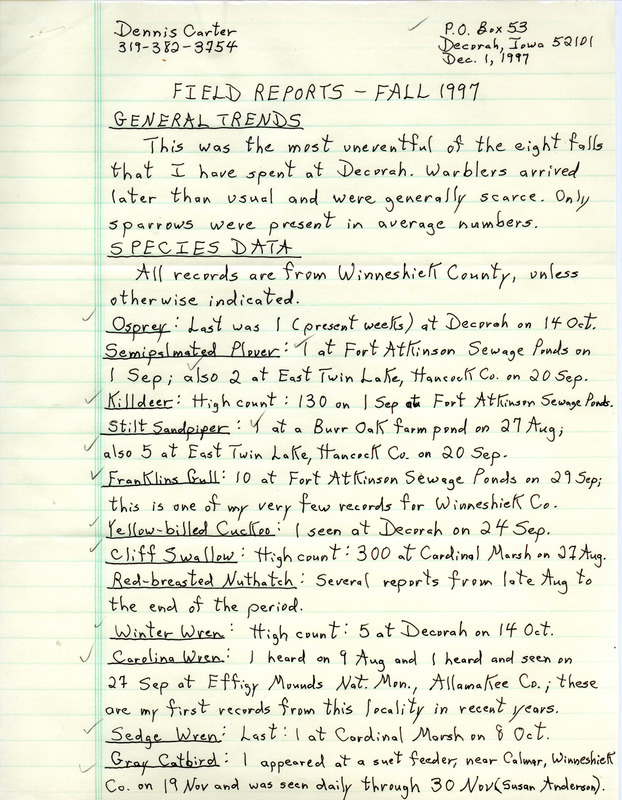 Dennis Carter
319-382-3754
P.O. Box 53
Decorah, Iowa 52101
Dec. 1, 1997
FIELD REPORTS - FALL 1997
GENERAL TRENDS
This was the most uneventful of the eight falls
that I have spent at Decorah. Warblers arrived
later than usual and were generally scarce. Only
sparrows were present in average numbers.
SPECIES DATA
All records are from Winneshiek County, unless
otherwise indicated.
Osprey: Last was 1 (present weeks) at Decorah on 14 Oct.
Semipalmated Plover: 1 at Fort Atkinson Sewage Ponds on
1 Sep; also 2 at East Twin Lake, Hancock Co. on 20 Sep.
Killdeer: High count: 130 on 1 Sep at Fort Atkinson Sewage Ponds.
Stilt Sandpiper: 1 at a Burr Oak farm pond on 27 Aug;
also 5 at East Twin Lake, Hancock Co. on 20 Sep.
Franklins Gull: 10 at Fort Atkinson Sewage Ponds on 29 Sep;
this is one of my very few records for Winneshiek Co.
Yellow-billed Cuckoo: 1 seen at Decorah on 24 Sep.
Cliff Swallow: High count: 300 at Cardinal Marsh on 27 Aug.
Red-breasted Nuthatch: Several reports from late Aug to
the end of the period.
Winter Wren: High count: 5 at Decorah on 14 Oct.
Carolina Wren: 1 heard on 9 Aug and 1 heard and seen on
27 Sep at Effigy Mounds Nat. Mon., Allamakee Co.; these
are my first records from this locality in recent years.
Sedge Wren: Last: 1 at Cardinal Marsh on 8 Oct.
Gray Catbird: 1 appeared at a suet feeder, near Calmar, Winneshiek
Co. on 19 Nov and was seen daily through 30 Nov (Susan Anderson).